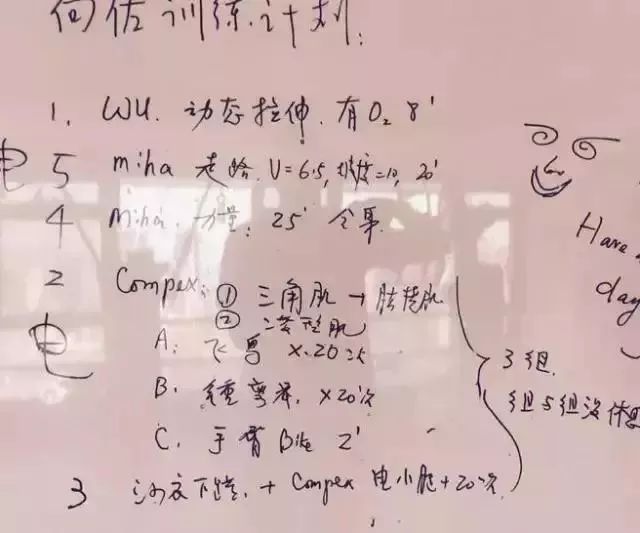 何佐训练计划:
1. WU. 动态拉伸. 有O₂ 8'
电 5 miha 走路. V=6.5, 坡度=10, 20'
4 Miha. 力量: 25' 全身
2 Compex: ① 三角肌 → 肱桡肌
② 二 肌
A: 飞鸟 ×20次
B. ×20次
C. 手臂 Bike 2'
电
3组
组与组没休息
3 下蹲 + Compex 电小腿 + 20次
Have a
day